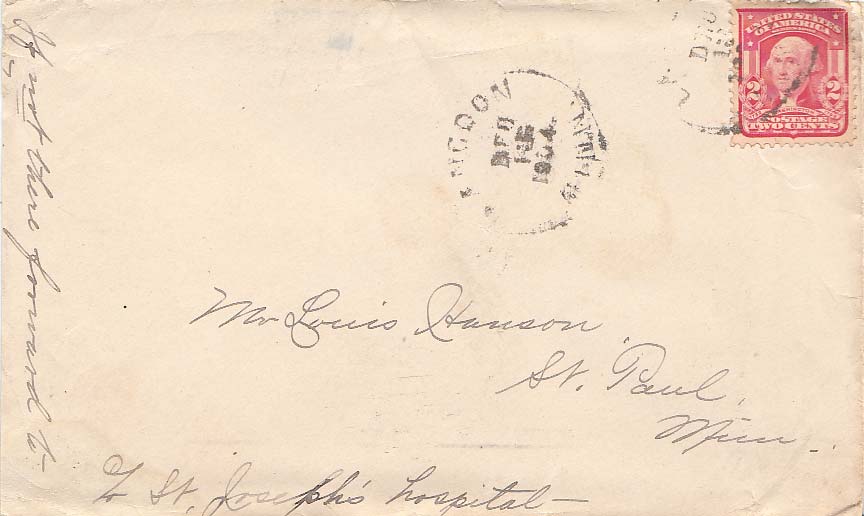 If not there forward to
UNITED STATES
OF AMERICA
2 2
WASHINGTON
POSTAGE
TWO CENTS
DEC
DEC
1904
Mr Louis Hanson
St. Paul,
Minn.
c/o St. Joseph's hospital